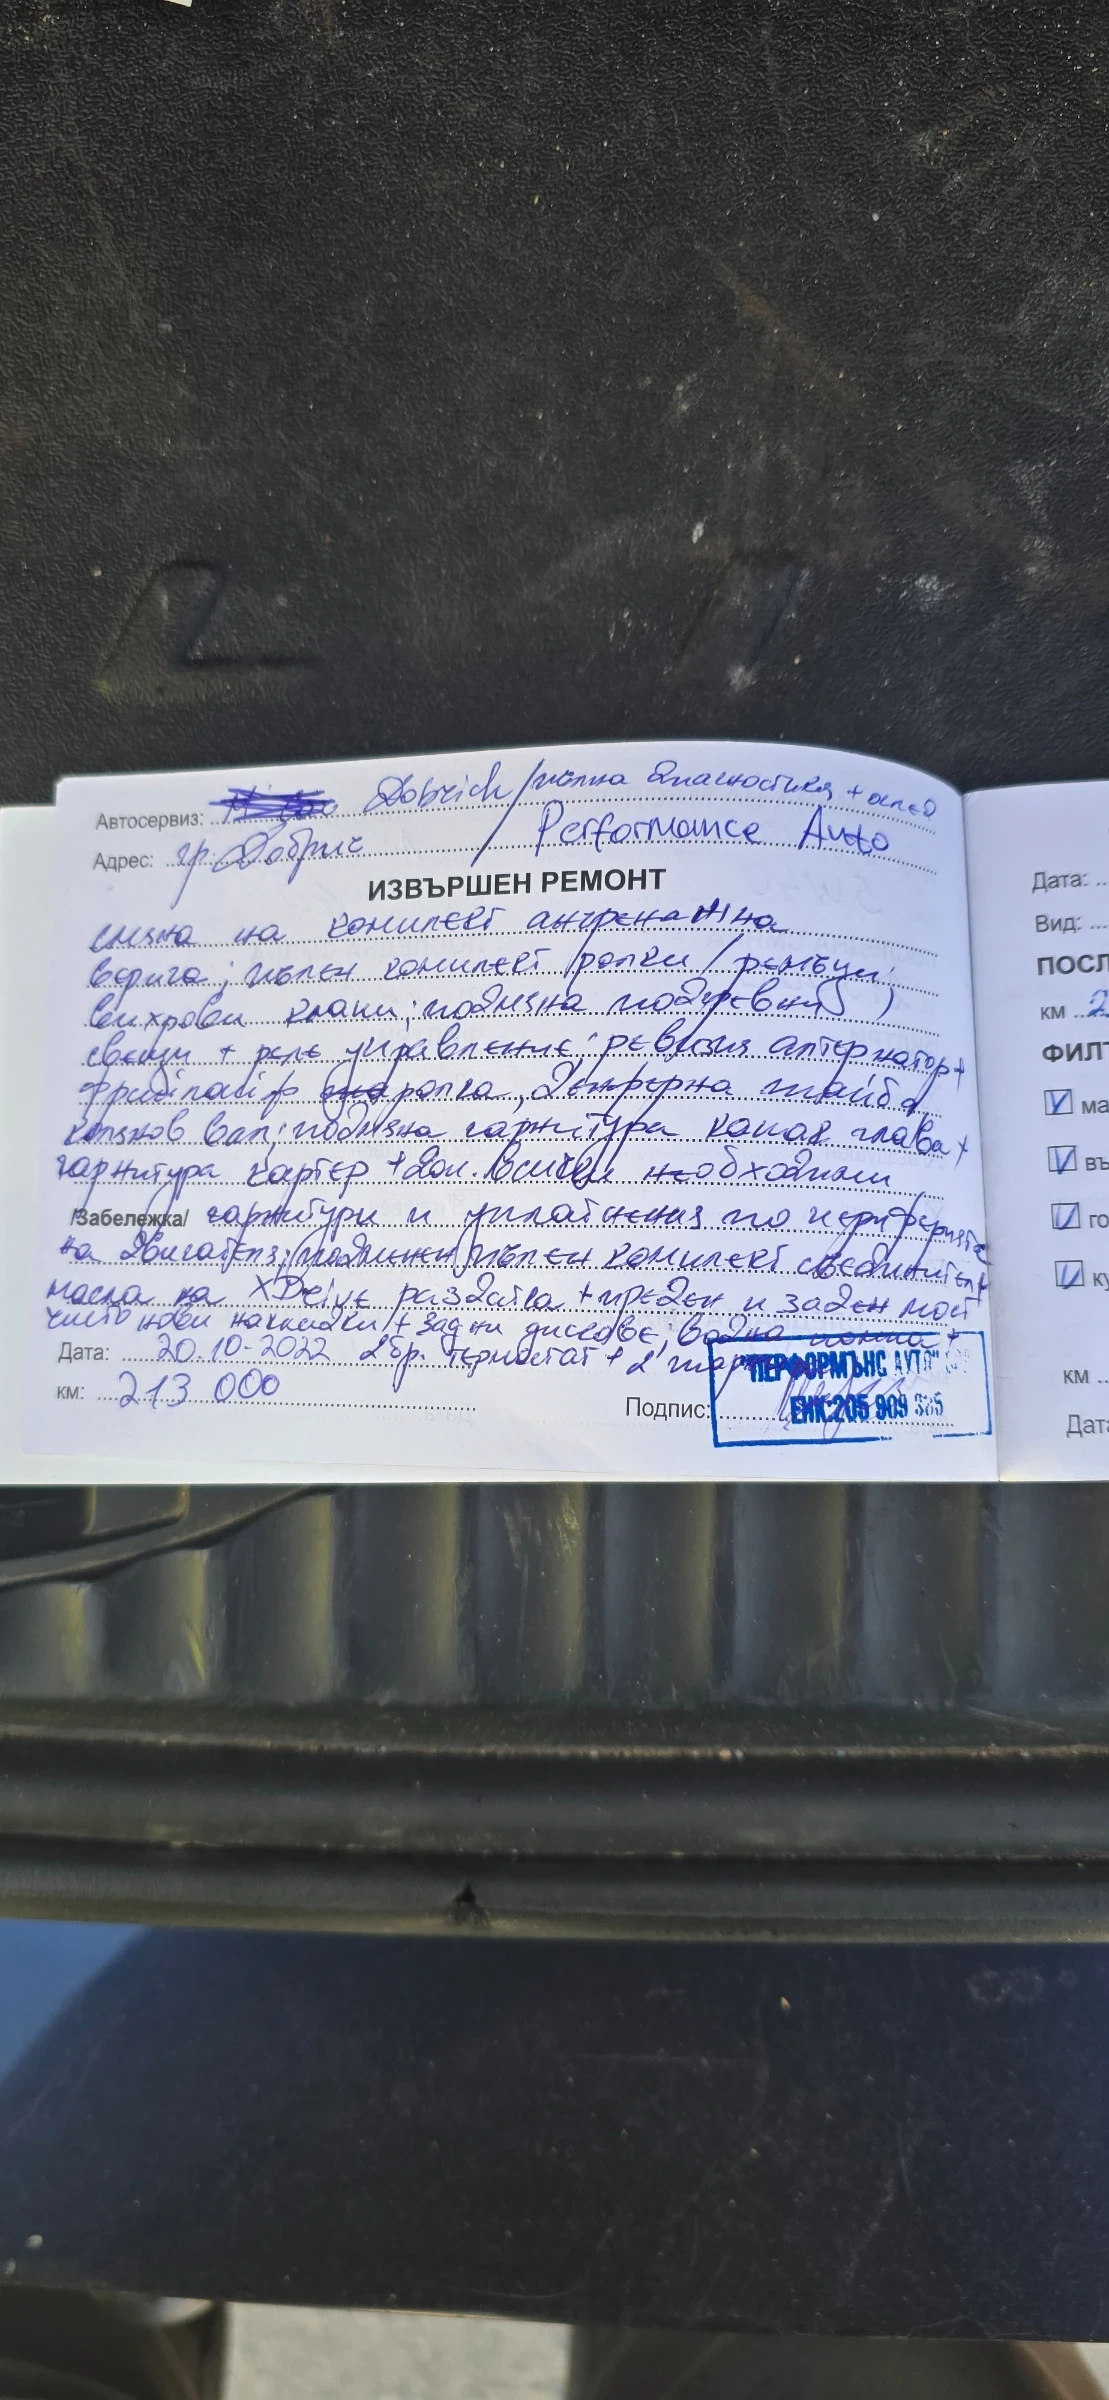 Автосервиз: Dobrich / пълна диагностика + оглед
Адрес: гр. Добрич / Performance Auto
ИЗВЪРШЕН РЕМОНТ
смяна на комплект ангренажна
верига; пълен комплект ролки / ремъци;
вихрови клапи; подмяна подгревни
свещи + реле управление; ревизия алтернатор +
ролка, демпферна шайба
колянов вал; подмяна гарнитура капак глава +
гарнитура картер + доп. всички необходими
/Забележка/ гарнитури и уплътнения по периферията
на двигателя; подменен пълен комплект съединител +
масла на XDrive раздатка + преден и заден мост
чисто нови накладки + задни дискове; водна помпа +
Дата: 20.10-2022 2бр. термостат + 2
км: 213 000
Подпис:
ПЕРФОРМЪНС АУТО
ЕИК:205 909
Дата:
Вид:
ПОСЛ
км 2
ФИЛТ
ма
въ
го
ку
км
Дата